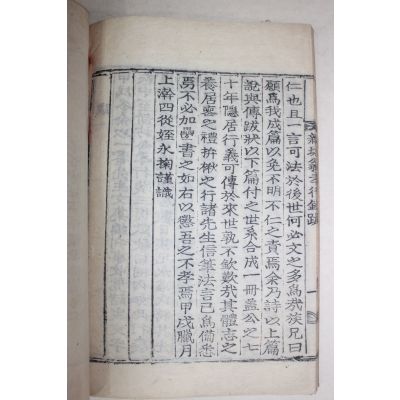 仁也且一言可法於後世何必文之多爲哉族兄曰
願爲我成篇以免不明不仁之責焉余乃詩以上篇
說與傳跋狀以下篇付之世系合成一冊盖公之七
十年隱居行義可傳於來世孰不欽歎哉其體志之
養居喪之禮拚楸之行諸先生信筆法言已爲備悉
焉不必加墨書之如右以懲吾之不孝焉甲戌臘月
上澣四從姪永掬謹識
坡翁言行錄跋
一